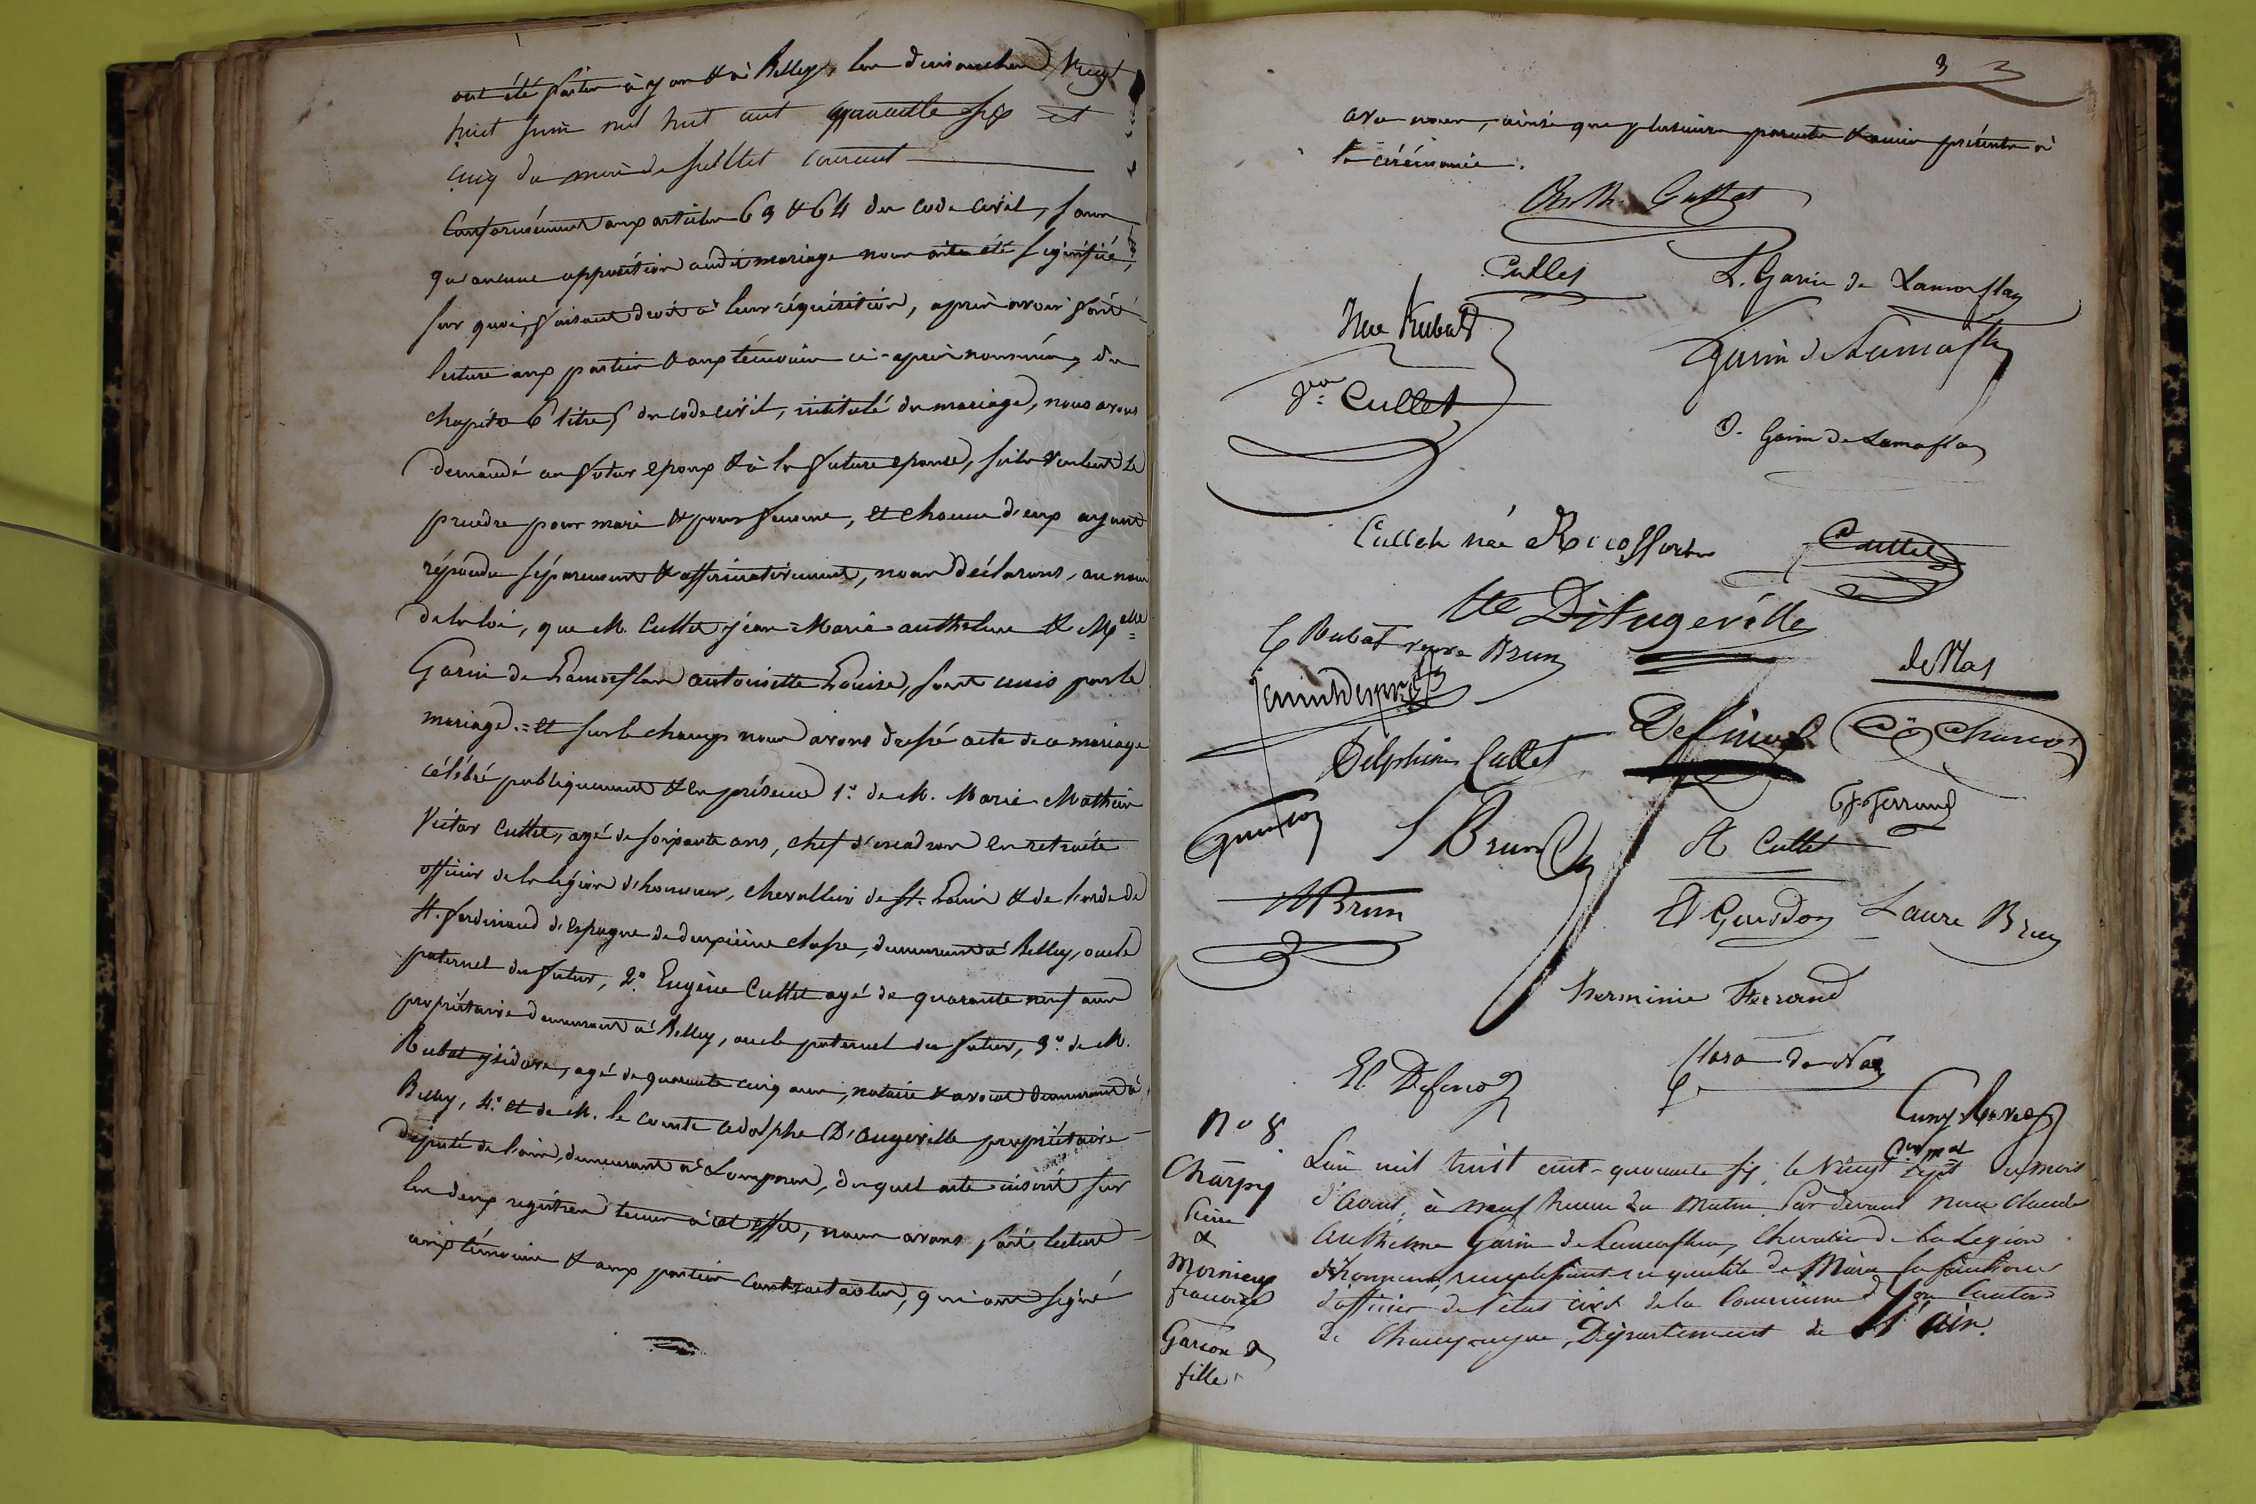 ont été faites à yon & à Belley, les dimanches Vingt
huit Juin mil huit cent quarante six et
cinq du mois de Juillet courant
Conformément aux articles 63 & 64 du code civil, sans
qu'aucune opposition audit mariage nous ait été signifiée,
sur quoi, faisant droit à leur réquisition, après avoir fait
lecture aux parties & aux témoins ci-après nommés, du
chapitre 6 titre 5 du code civil, intitulé du mariage, nous avons
demandé au futur epoux & à la future epouse, s'ils veulent se
prendre pour mari & pour femme, et chacun d'eux ayant
répondu séparement & affirmativement, nous déclarons, au nom
de la loi, que M. Cullet jean-Marie-anthelme & Melle
Garin de Lamorflan antoinette Louise, sont unis par le
mariage.= et sur le champ nous avons dressé acte de ce mariage
célébré publiquement & en présence 1° de M. Marie-Mathieu
Victor Cullet, agé de soixante ans, chef d'escadron en retraite
officier de la légion d'honneur, chevallier de st. Louis & de l'ordre de
st. ferdinand d'espagne de deuxième classe, demeurant à Belley, oncle
paternel du futur, 2° Eugène Cullet agé de quarante neuf ans
propriétaire demeurant à Belley, oncle paternel du futur, 3° de M.
Rubat ysidore, agé de quarante cinq ans, notaire & avocat demeurant à
Belley, 4° et de M. le comte adolphe D'angeville propriétaire
député de l'ain, demeurant à Lompnes, duquel acte inscrit sur
les deux registres tenus à cet effet, nous avons fait lecture
aux témoins & aux parties contractantes, qui ont signé
3
avec nous, ainsi que plusieurs parents & amis présents à
la cérémonie.
Cullet
Cullet L. Garin de Lamorflan
Née Rubat Garin de Lamorflan
Vve Cullet
Garin de Lamorflan
Cullet née Cullet
Cte D'Angeville
Rubat veuve Brun
de Nas
Delphine Cullet
Ferrand
Brun Cullet
Brun
Guidon Laure Brun
herminie Ferrand
Clara de Nas
N° 8
Charpy
&
Mornieux
françoise
Garçon &
fille
L'an mil huit cent-quarante six, le Vingt sept du mois
d'Aout, à neuf heures du matin Par devant nous Claude
Anthelme Garin de Lamorflan, Chevalier de La Légion
d'Honneur, remplissant en qualité de Maire les fonctions
d'officier de l'état civil de la Commune d'Yon Canton
de Champagne, Département de l'Ain.